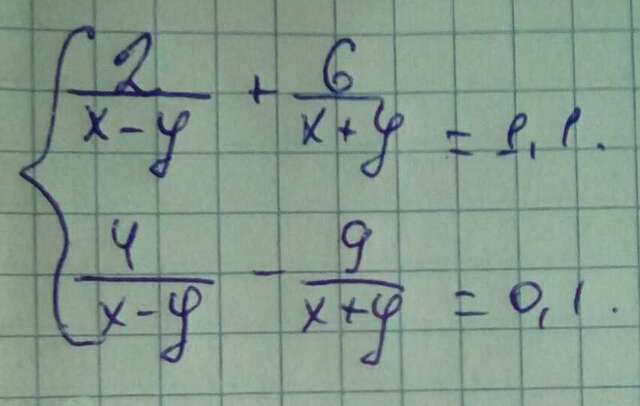 2/(x-y) + 6/(x+y) = 1,1.
4/(x-y) - 9/(x+y) = 0,1.